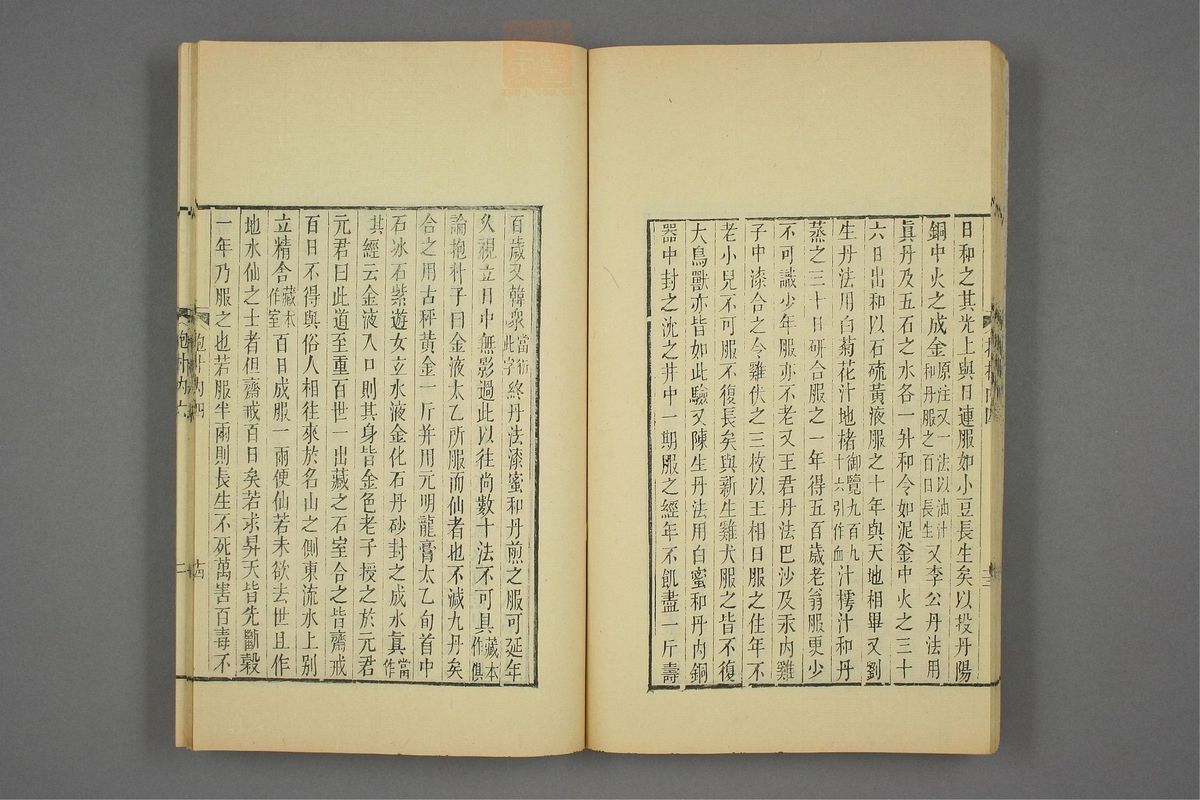 日和之其光上與日連服如小豆長生矣以投丹陽
銅中火之成金原注又一法以油汁和丹服之百日長生又李公丹法用
眞丹及五石之水各一升和令如泥釜中火之三十
六日出和以石硫黃液服之十年與天地相畢又劉
生丹法用白菊花汁地楮御覽九百九十六引作血汁樗汁和丹
蒸之三十日研合服之一年得五百歲老翁服更少
不可識少年服亦不老又王君丹法巴沙及汞內雞
子中漆合之令雞伏之三枚以王相日服之住年不
老小兒不可服不復長矣與新生雞犬服之皆不復
大鳥獸亦皆如此驗又陳生丹法用白蜜和丹內銅
器中封之沈之井中一期服之經年不飢盡一斤壽
百歲又韓衆當衍此字終丹法漆蜜和丹煎之服可延年
久視立日中無影過此以往尚數十法不可具藏本作俱
論抱朴子曰金液太乙所服而仙者也不減九丹矣
合之用古秤黃金一斤并用元明龍膏太乙旬首中
石冰石紫遊女立水液金化石丹砂封之成水眞當作
其經云金液入口則其身皆金色老子授之於元君
元君曰此道至重百世一出藏之石室合之皆齋戒
百日不得與俗人相往來於名山之側東流水上別
立精舍藏本作室百日成服一兩便仙若未欲去世且作
地水仙之士者但齋戒百日矣若求昇天皆先斷穀
一年乃服之也若服半兩則長生不死萬害百毒不
抱朴內四